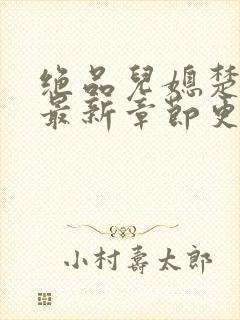 绝品儿媳楚
最新章节更
小村寿太郎